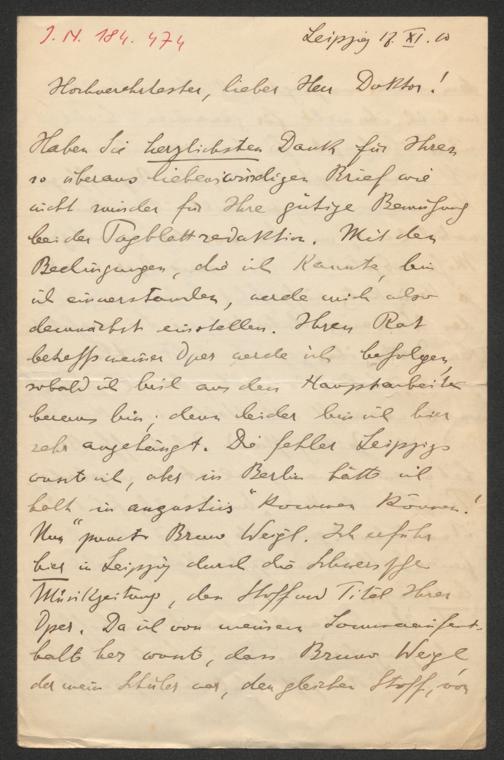 I. N. 184. 474
Leipzig 17. XI. 10
Hochverehrtester, lieber Herr Doktor!
Haben Sie herzlichsten Dank für Ihren
so überaus liebenswürdigen Brief wie
nicht minder für Ihre gütige Bemühung
bei der Tagblattredaktion. Mit den
Bedingungen, die ich kannte, bin
ich einverstanden, werde mich also
demnächst einstellen. Ihren Rat
betreffs meiner Oper werde ich befolgen,
sobald ich hier aus den Hauptarbeiten
heraus bin; denn leider bin ich hier
sehr angehängt. Die Fehler Leipzigs
wusst ich, aber in Berlin hätte ich
halt in "kommen können!
Nun "puncto Bruno Weigl. Ich erfuhr
hier in Leipzig durch die
Musikzeitung, den Stoff und Titel Ihrer
Oper. Da ich von meinem Sommeraufent-
halt her wusst, dass Bruno Weigl
der mein Schüler war, den gleichen Stoff, von